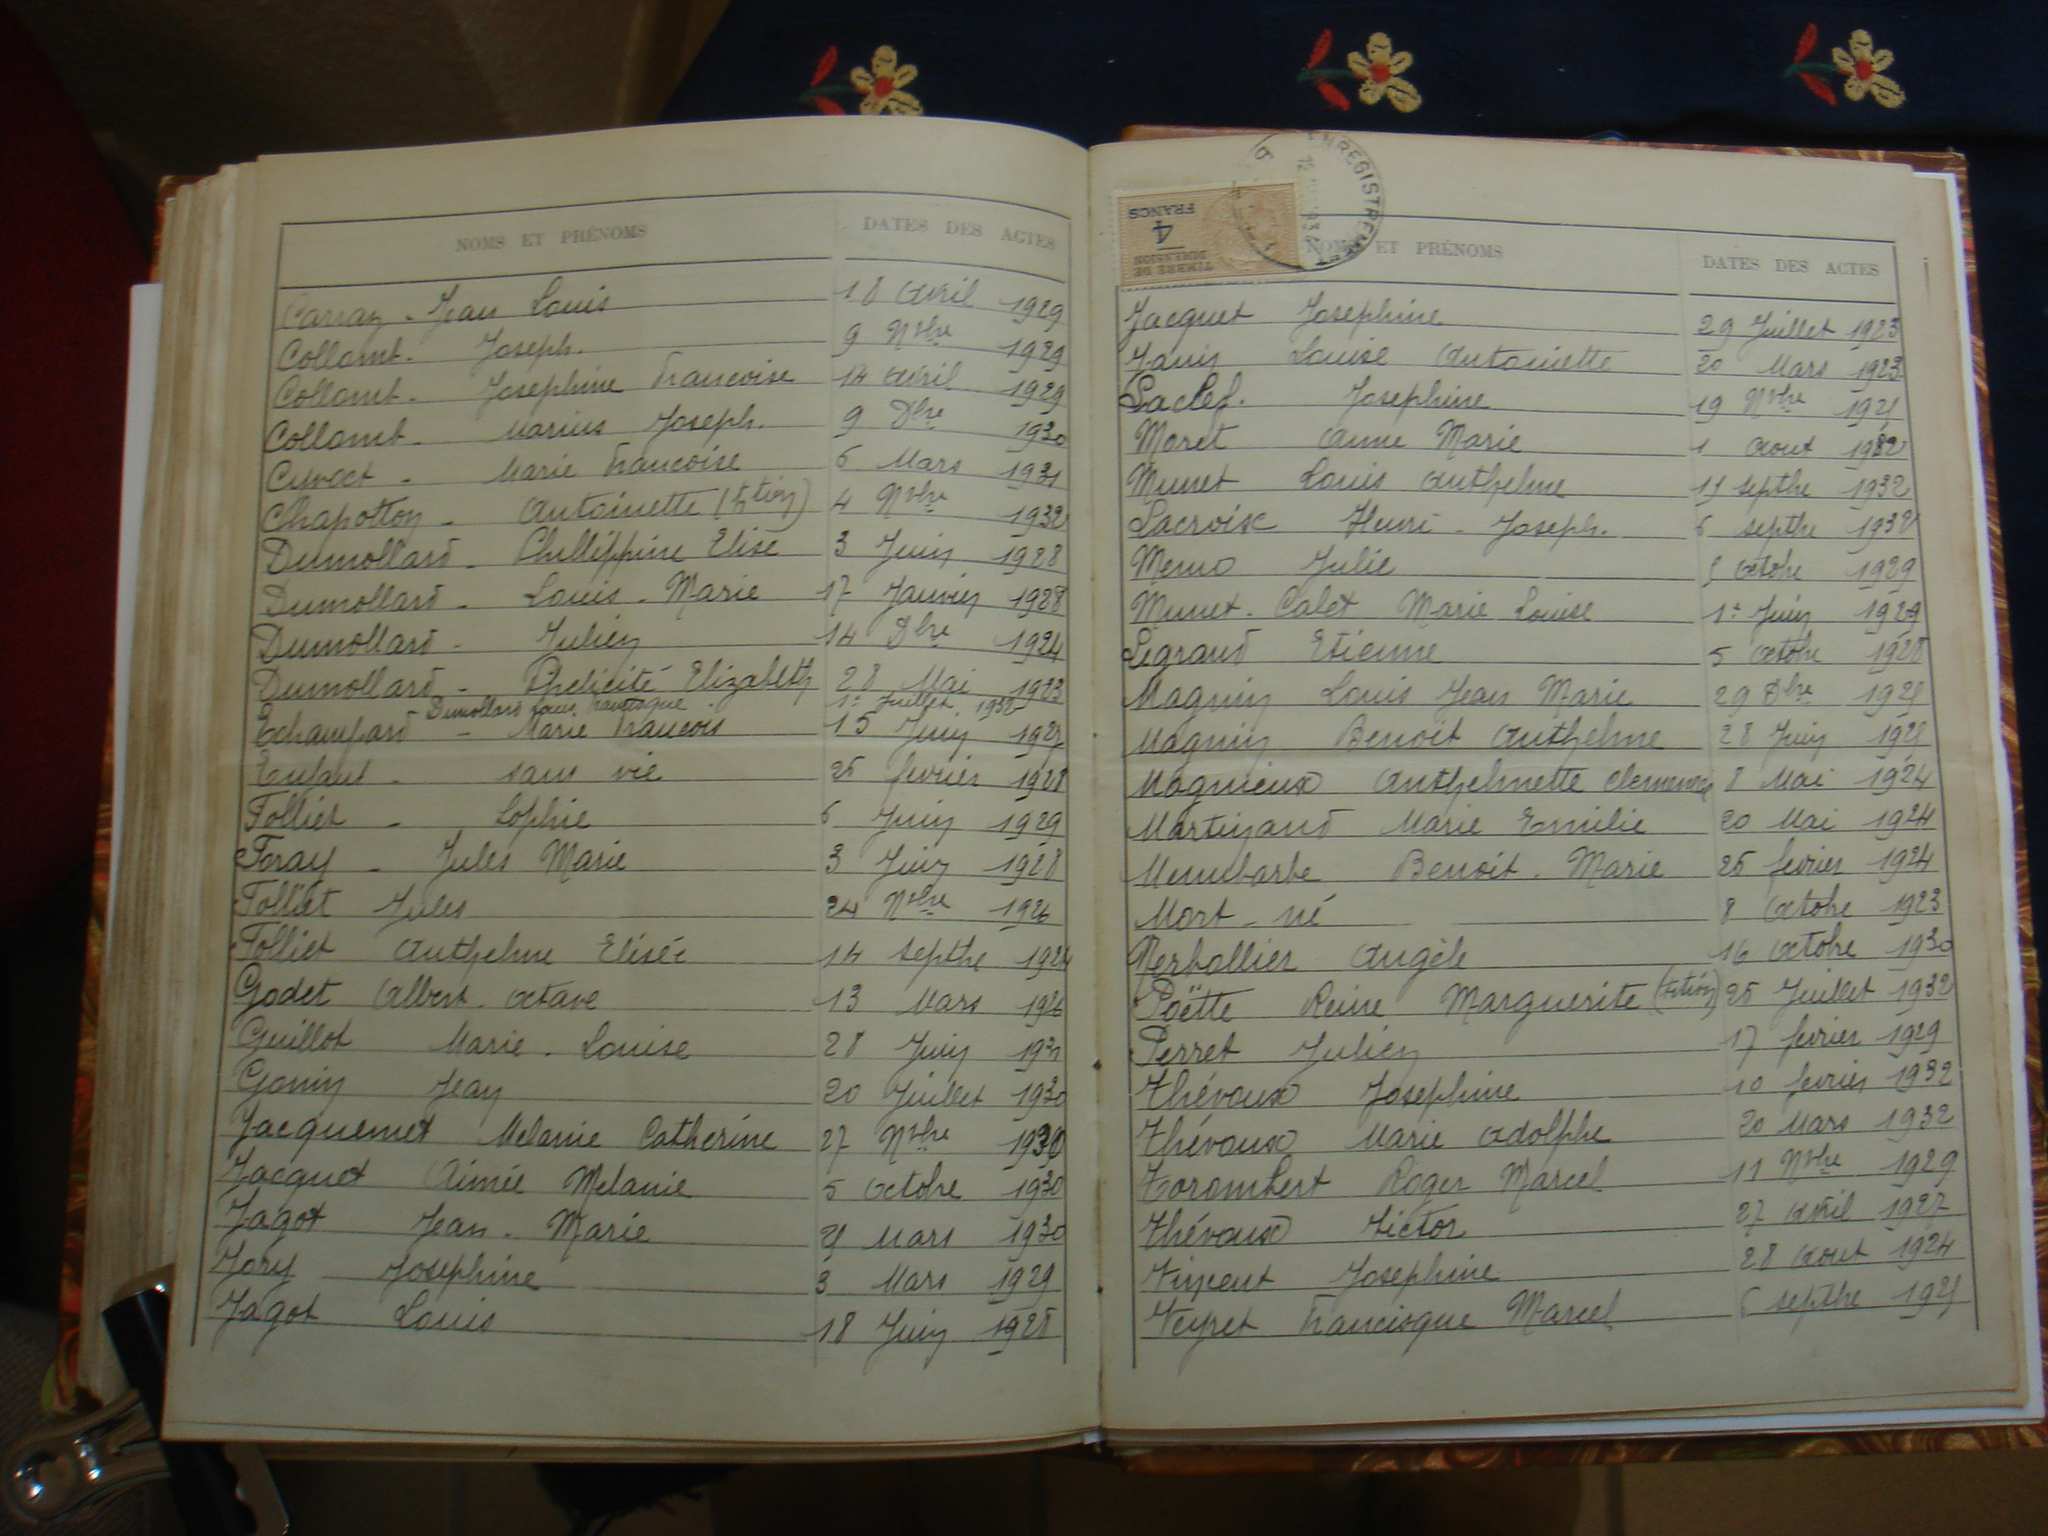 NOMS ET PRÉNOMS DATES DES ACTES
Carraz - Jean Louis 18 avril 1929
Collomb - Joseph. 9 Nbre 1929
Collomb - Josephine Francoise 14 avril 1929
Collomb - Marius Joseph. 9 Dbre 1930
Marie Francoise 6 Mars 1931
Chapotton - Antoinette 4 Nbre 1932
Dumollard - Phillippine Elise 3 Juin 1928
Dumollard - Louis - Marie 17 Janvier 1928
Dumollard - Julien 14 Dbre 1924
Dumollard - Phelicité Elizabeth 28 Mai 1923
Dumollard Louis Francisque 1er Juillet 1932
Echampard - Marie Francois 15 Juin 1927
Enfant - sans vie 25 fevrier 1928
Folliet - Sophie 6 Juin 1929
Foray - Jules Marie 3 Juin 1928
Folliet Jules 24 Nbre 1926
Folliet Anthelme Elisée 14 septbre 1924
Godet Albert octave 13 Mars 1926
Guillot Marie - Louise 28 Juin 1931
Gonin Jean 20 Juillet 1930
Jacquemet Melanie Catherine 27 Nbre 1930
Jacquet Aimée Melanie 5 octobre 1930
Jagot Jean - Marie 21 Mars 1930
Jory Josephine 3 Mars 1929
Jagot Louis 18 Juin 1928
ENREGISTREMENT
TIMBRE DE DIMENSION
4 FRANCS
NOMS ET PRÉNOMS DATES DES ACTES
Jacquet Josephine 29 Juillet 1923
Janin Louise Antoinette 20 Mars 1923
Laclef. Josephine 19 Nbre
Moret Anne Marie 1 aout 1932
Munet Louis Anthelme 11 septbre 1932
Lacroix Henri - Joseph. 6 septbre 1932
Julie octobre 1929
Munet - Calet Marie Louise 1er Juin 1929
Legrand Etienne 5 octobre 1928
Magnin Louis Jean Marie 29 Dbre
Magnin Benoit Anthelme 28 Juin
Magnieux Anthelmette Clemence 8 Mai 1924
Martinand Marie Emilie 20 Mai 1924
Membarbe Benoit - Marie 25 fevrier 1924
Mort - né 8 octobre 1923
Nerbollier Angèle 16 octobre 1930
Poëtte Reine Marguerite 25 Juillet 1932
Perret Julien 17 fevrier 1929
Thévoux Josephine 10 fevrier 1932
Thévoux Marie Adolphe 20 Mars 1932
Torombert Roger Marcel 11 Nbre 1929
Thévoux Victor 27 avril 1927
Vincent Josephine 28 aout 1924
Veyret Francisque Marcel 6 septbre